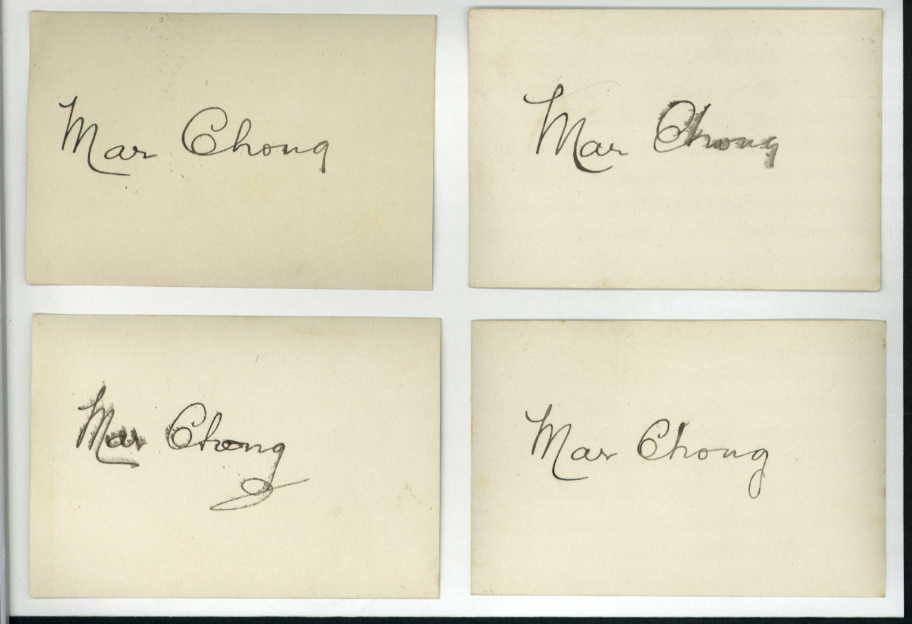 Mar Chong
Mar Chong
Mar Chong
Mar Chong